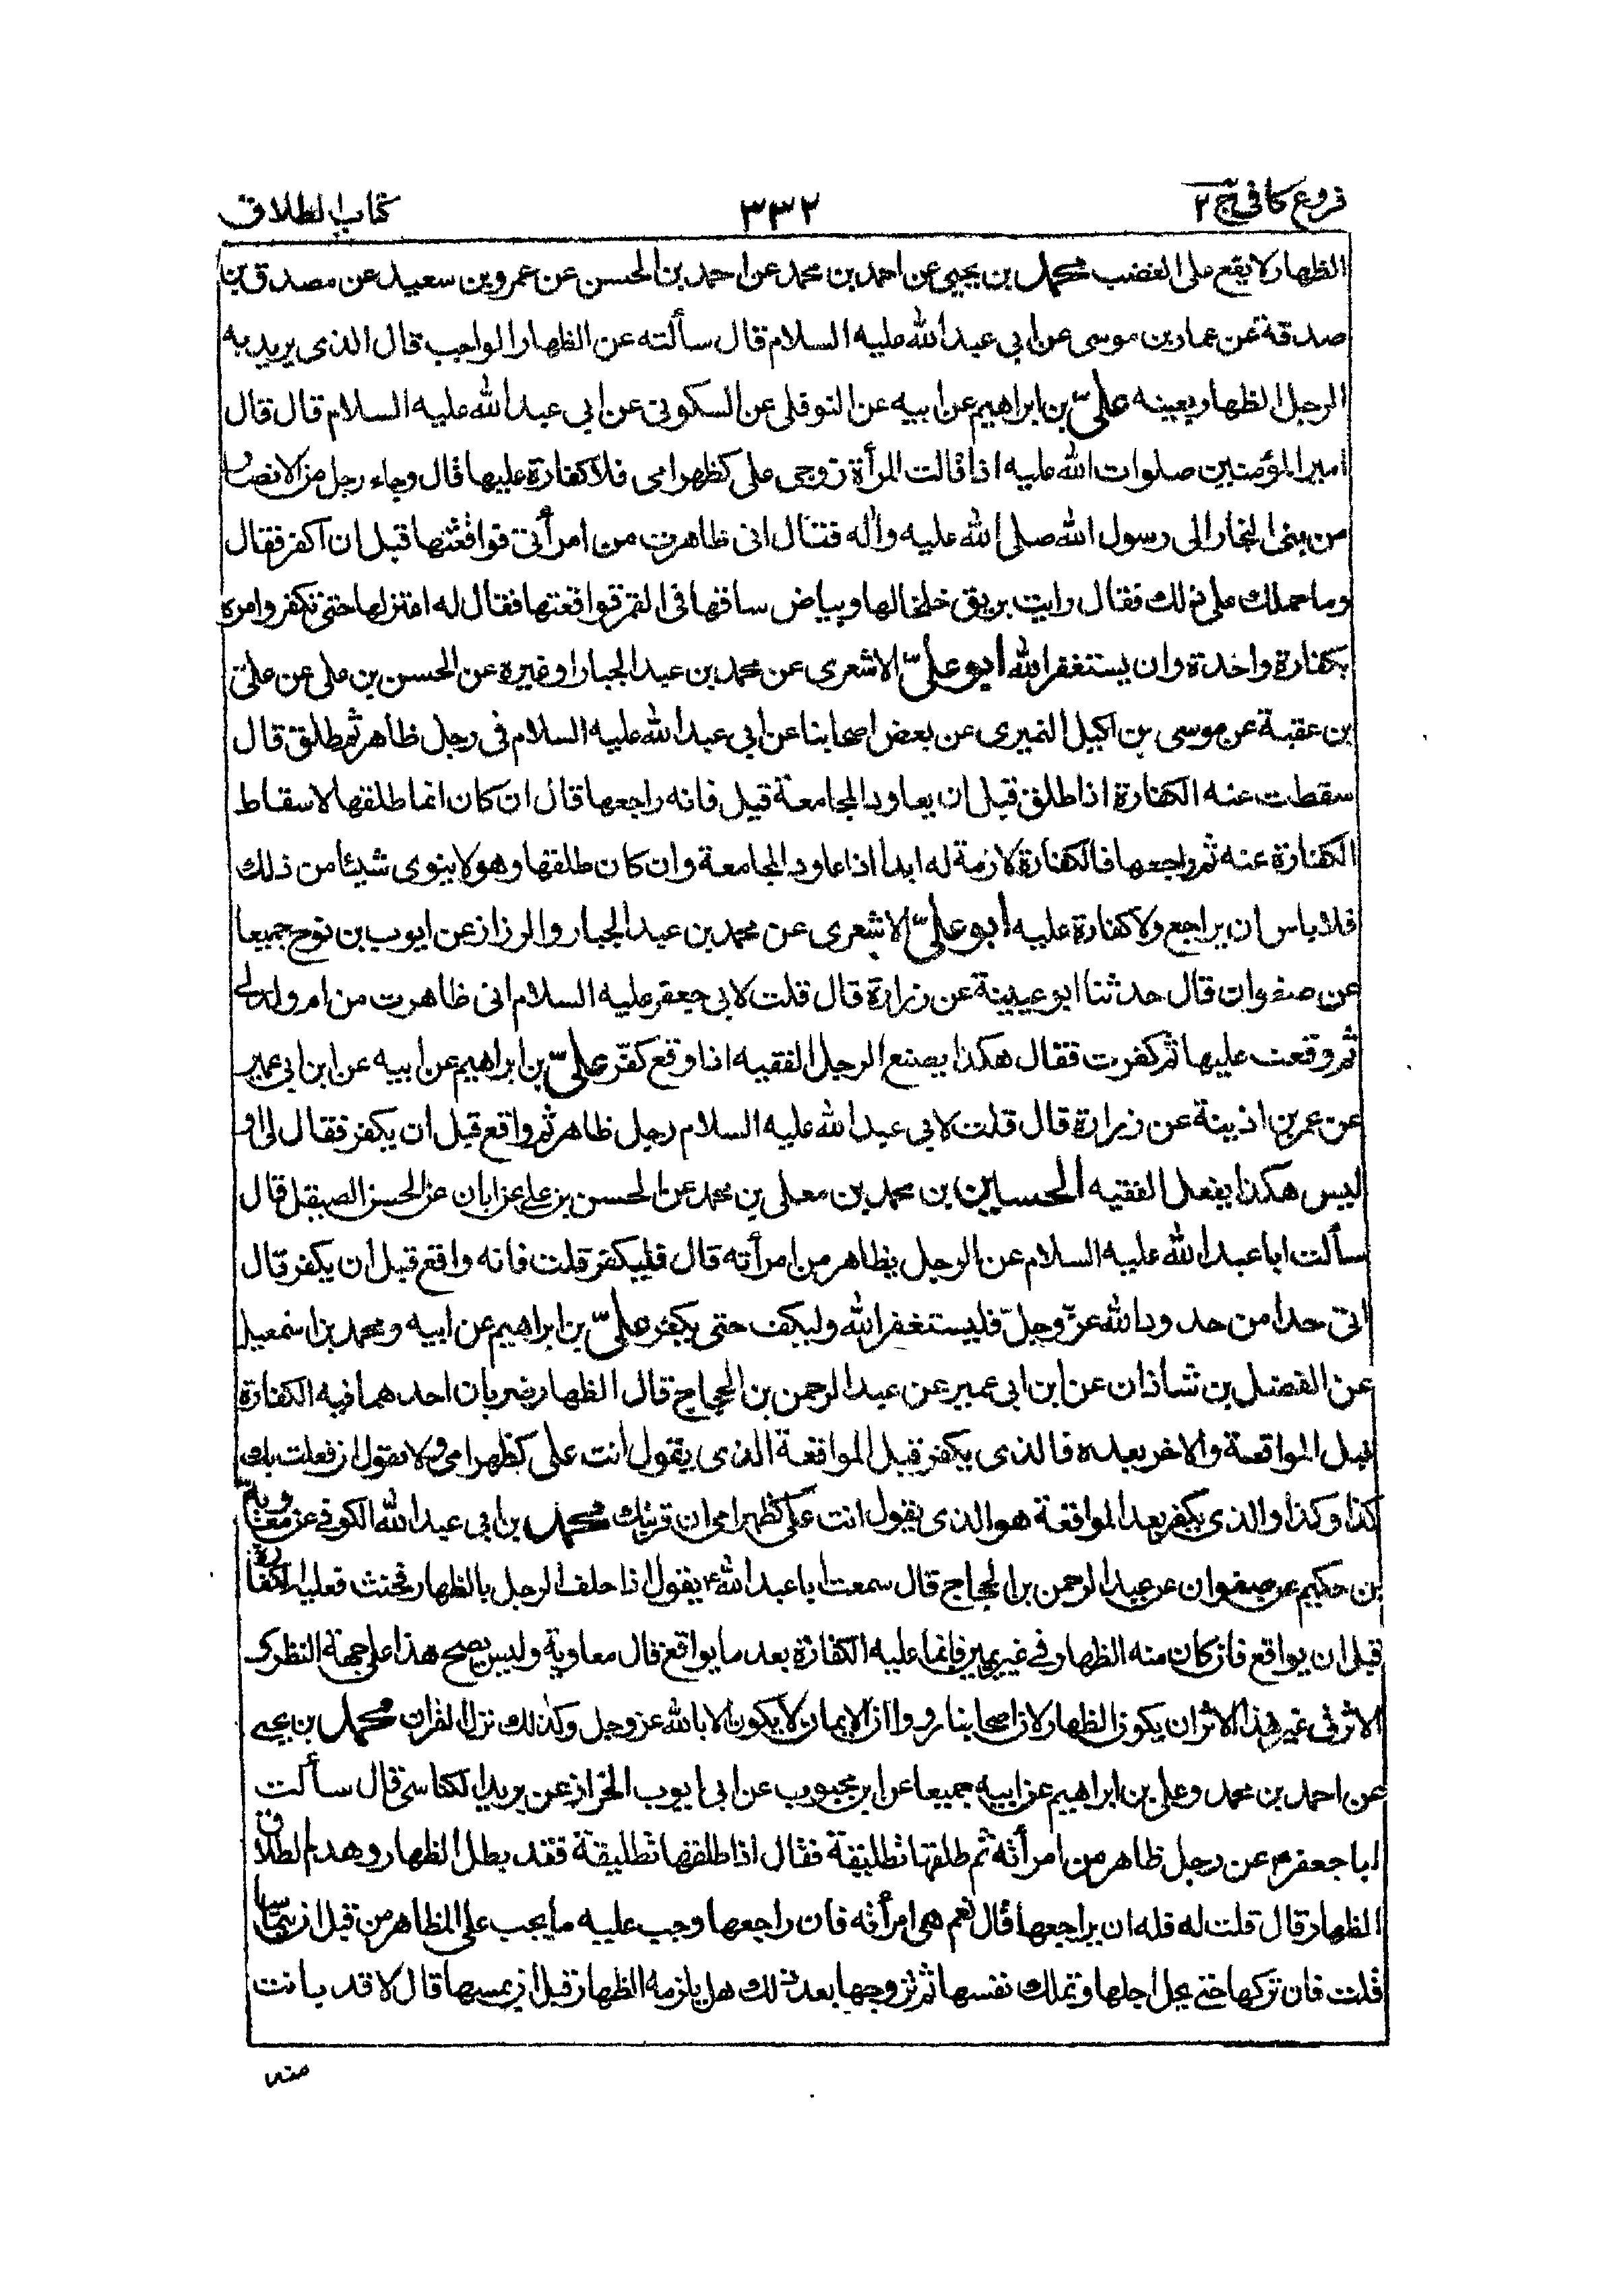 فروع كافى ج ٢
٣٣٢
كتاب الطلاق
الظهار لا يقع على الغضب محمد بن يحيى عن احمد بن محمد عن احمد بن الحسن عن عمرو بن سعيد عن مصدق بن
صدقة عن عمار بن موسى عن ابي عبد الله عليه السلام قال سألته عن الظهار الواجب قال الذى يريد به
الرجل الظهار بعينه علىّ بن ابراهيم عن ابيه عن النوفلى عن السكونى عن ابي عبد الله عليه السلام قال قال
امير المؤمنين صلوات الله عليه اذا قالت المرأة زوجى على كظهر امى فلا كفارة عليها قال وجاء رجل من الانصار
من بنى النجار الى رسول الله صلى الله عليه واله فقال انى ظاهرت من امرأتى فواقعتها قبل ان اكفر فقال
وما حملك على ذلك فقال رايت بريق خلخالها وبياض ساقها فى القمر فواقعتها فقال له اعتزلها حتى تكفر وامره
بكفارة واحدة وان يستغفر الله ابو علىّ الاشعرى عن محمد بن عبد الجبار او غيره عن الحسن بن على عن علىّ
بن عقبة عن موسى بن اكيل النميرى عن بعض اصحابنا عن ابي عبد الله عليه السلام فى رجل ظاهر ثم طلق قال
سقطت عنه الكفارة اذا طلق قبل ان يعاود المجامعة قيل فانه راجعها قال ان كان انما طلقها لاسقاط
الكفارة عنه ثم راجعها فالكفارة لازمة له ابدا اذا عاود المجامعة وان كان طلقها وهو لا ينوى شيئا من ذلك
فلا باس ان يراجع ولا كفارة عليه ابو علىّ الاشعرى عن محمد بن عبد الجبار والرزاز عن ايوب بن نوح جميعا
عن صفوان قال حدثنا ابو عيينة عن زرارة قال قلت لابي جعفر عليه السلام انى ظاهرت من ام ولد لي
ثم وقعت عليها ثم كفرت فقال هكذا يصنع الرجل الفقيه اذا وقع كفّر علىّ بن ابراهيم عن ابيه عن ابن ابي عمير
عن عمر بن اذينة عن زرارة قال قلت لابي عبد الله عليه السلام رجل ظاهر ثم واقع قبل ان يكفر فقال لى او
ليس هكذا يفعل الفقيه الحسين بن محمد بن معلى بن محمد عن الحسن بن على عن ابان عن الحسن الصيقل قال
سألت ابا عبد الله عليه السلام عن الرجل يظاهر من امرأته قال فليكفر قلت فانه واقع قبل ان يكفر قال
اتى حدا من حدود الله عزّ وجلّ فليستغفر الله وليكف حتى يكفر علىّ بن ابراهيم عن ابيه ومحمد بن اسمعيل
عن الفضل بن شاذان عن ابن ابي عمير عن عبد الرحمن بن الحجاج قال الظهار ضربان احدهما فيه الكفارة
قبل المواقعة والاخر بعده فالذى يكفر قبل المواقعة الذى يقول انت على كظهر امى ولا يقول ان فعلت بك
كذا وكذا والذى يكفر بعد المواقعة هو الذى يقول انت على كظهر امى ان قربتك محمد بن ابي عبد الله الكوفى عن معاوية
بن حكيم عن صفوان عن عبد الرحمن بن الحجاج قال سمعت ابا عبد الله ع يقول اذا حلف الرجل بالظهار فحنث فعليه الكفارة
قبل ان يواقع فان كان منه الظهار فى غير يمين فانما عليه الكفارة بعد ما يواقع قال معاوية وليس يصح هذا على جهة النظر و
الاثر فى غير هذا الاثر ان يكون الظهار لان اصحابنا رووا ان الايمان لا يكون الا بالله عز وجل وكذلك نزل القران محمد بن يحيى
عن احمد بن محمد وعلى بن ابراهيم عن ابيه جميعا عن ابن محبوب عن ابى ايوب الخزاز عن يزيد الكناسى قال سألت
ابا جعفر ع عن رجل ظاهر من امرأته ثم طلقها تطليقة فقال اذا طلقها تطليقة فقد بطل الظهار وهدم الطلاق
الظهار قال قلت له فله ان يراجعها قال نعم هى امرأته فان راجعها وجب عليه ما يجب على المظاهر من قبل ان يتماسا
قلت فان تركها حتى يحل اجلها وتملك نفسها ثم تزوجها بعد ذلك هل يلزمه الظهار قبل ان يمسها قال لا قد بانت
منه